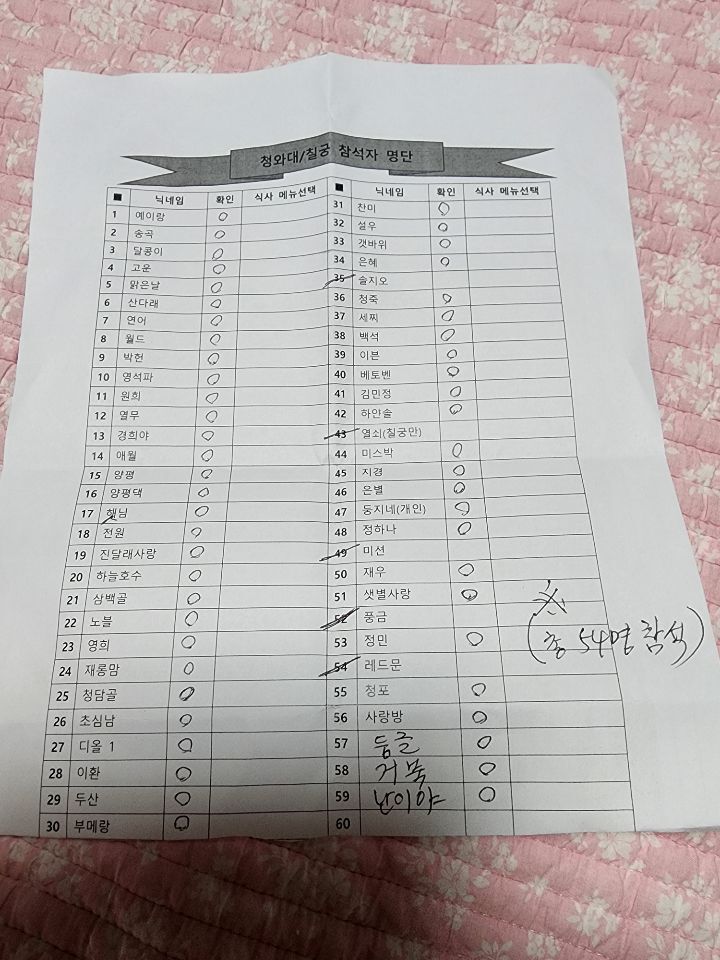 청와대/칠궁 참석자 명단
■ 닉네임 확인 식사 메뉴선택
1 예이랑 O
2 송곡 O
3 달콩이 O
4 고운 O
5 맑은날 O
6 산다래 O
7 연어 O
8 월드 O
9 박헌 O
10 영석파 O
11 원희 O
12 열무 O
13 경희야 O
14 애월 O
15 양평 O
16 양평댁 O
17 햇님 O
18 전원 O
19 진달래사랑 O
20 하늘호수 O
21 삼백골 O
22 노블 O
23 영희 O
24 재롱맘 O
25 청담골 O
26 초심남 O
27 디올 1 O
28 이환 O
29 두산 O
30 부메랑 O
■ 닉네임 확인 식사 메뉴선택
31 찬미 O
32 설우 O
33 갯바위 O
34 은혜 O
35 솔지오
36 청죽 O
37 세찌 O
38 백석 O
39 이븐 O
40 베토벤 O
41 김민정 O
42 하얀솔 O
43 열쇠(칠궁만)
44 미스박 O
45 지경 O
46 은별 O
47 둥지네(개인) O
48 정하나 O
49 미션
50 재우 O
51 샛별사랑 O
52 풍금
53 정민 O
54 레드문
55 청포 O
56 사랑방 O
57 둥글 O
58 거북 O
59 난이야 O
60
※
(총 54명 참석)